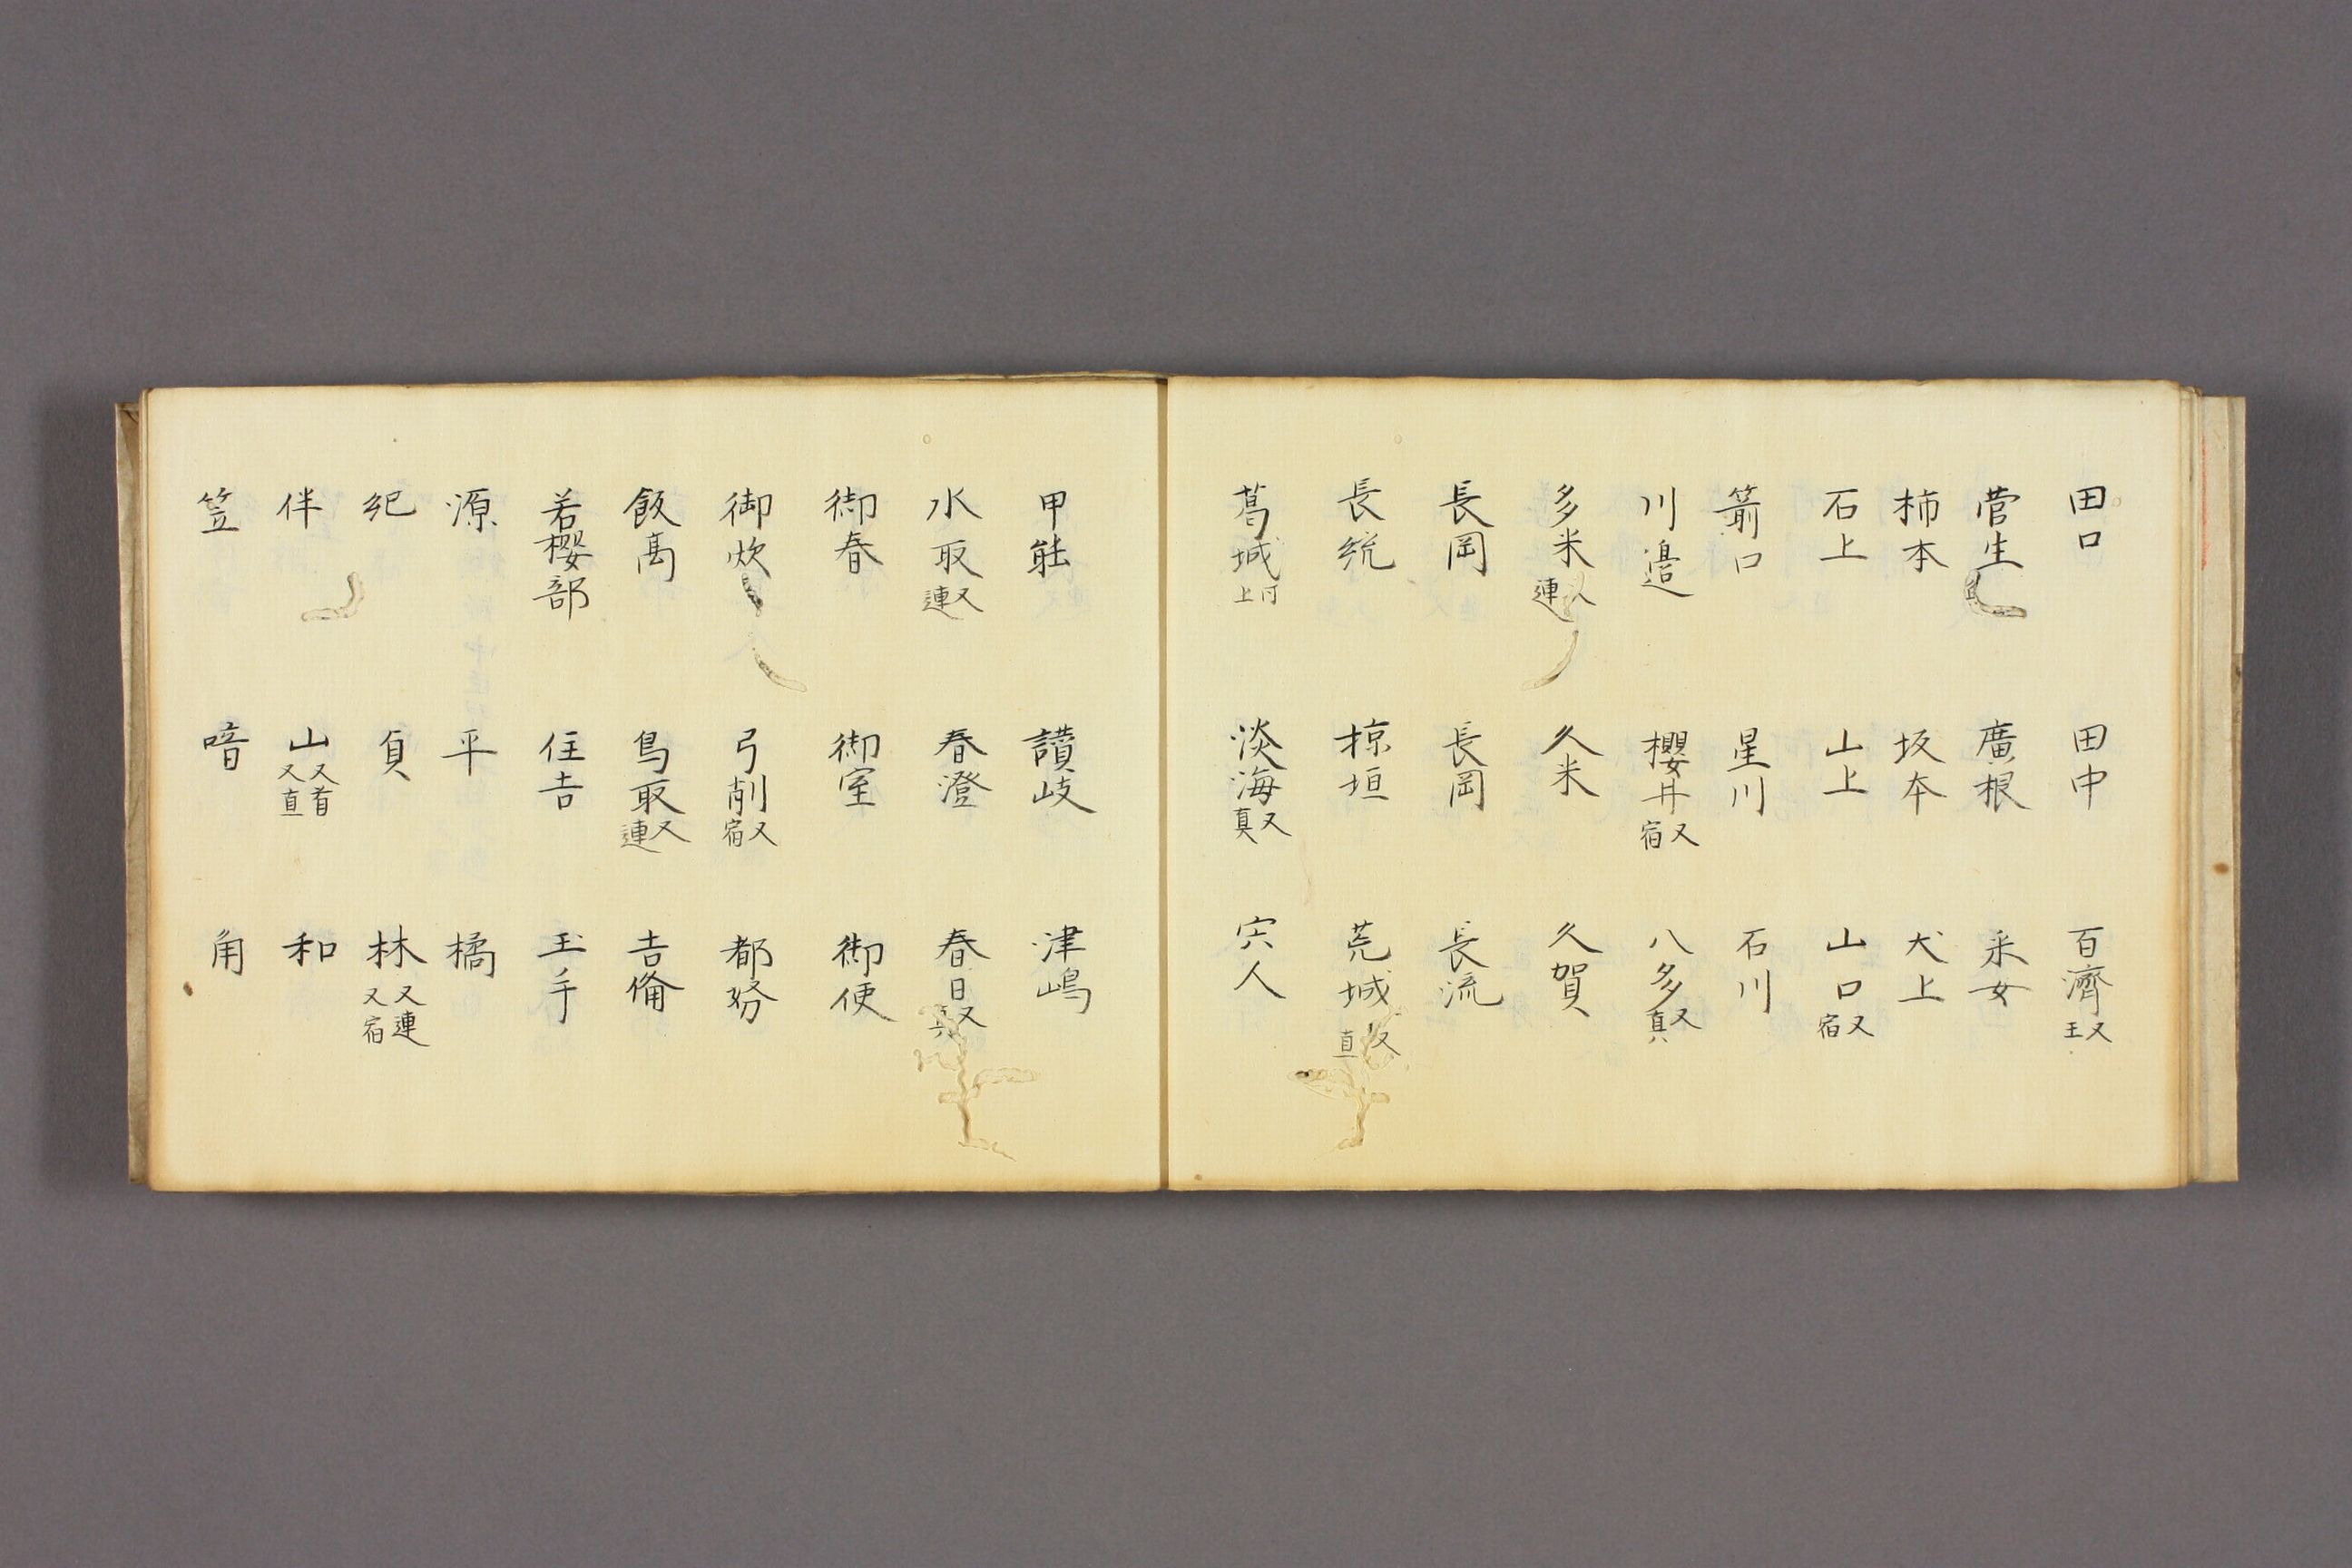 田口 田中 百濟又王
菅生 廣根 采女
柿本 坂本 犬上
石上 山上 山口又宿
箭口 星川 石川
川邉 櫻井又宿 八多又真
多米又連 久米 久賀
長岡 長岡 長流
長統 椋垣 荒城又直
葛城 淡海又真 宍人
甲能 讃岐 津嶋
水取又連 春澄 春日又真
御春 御室 御使
御炊 弓削又宿 都努
飯高 鳥取又連 吉備
若櫻部 住吉 玉手
源 平 橘
紀 林又連又宿
伴 山又首又直 和
笠 角